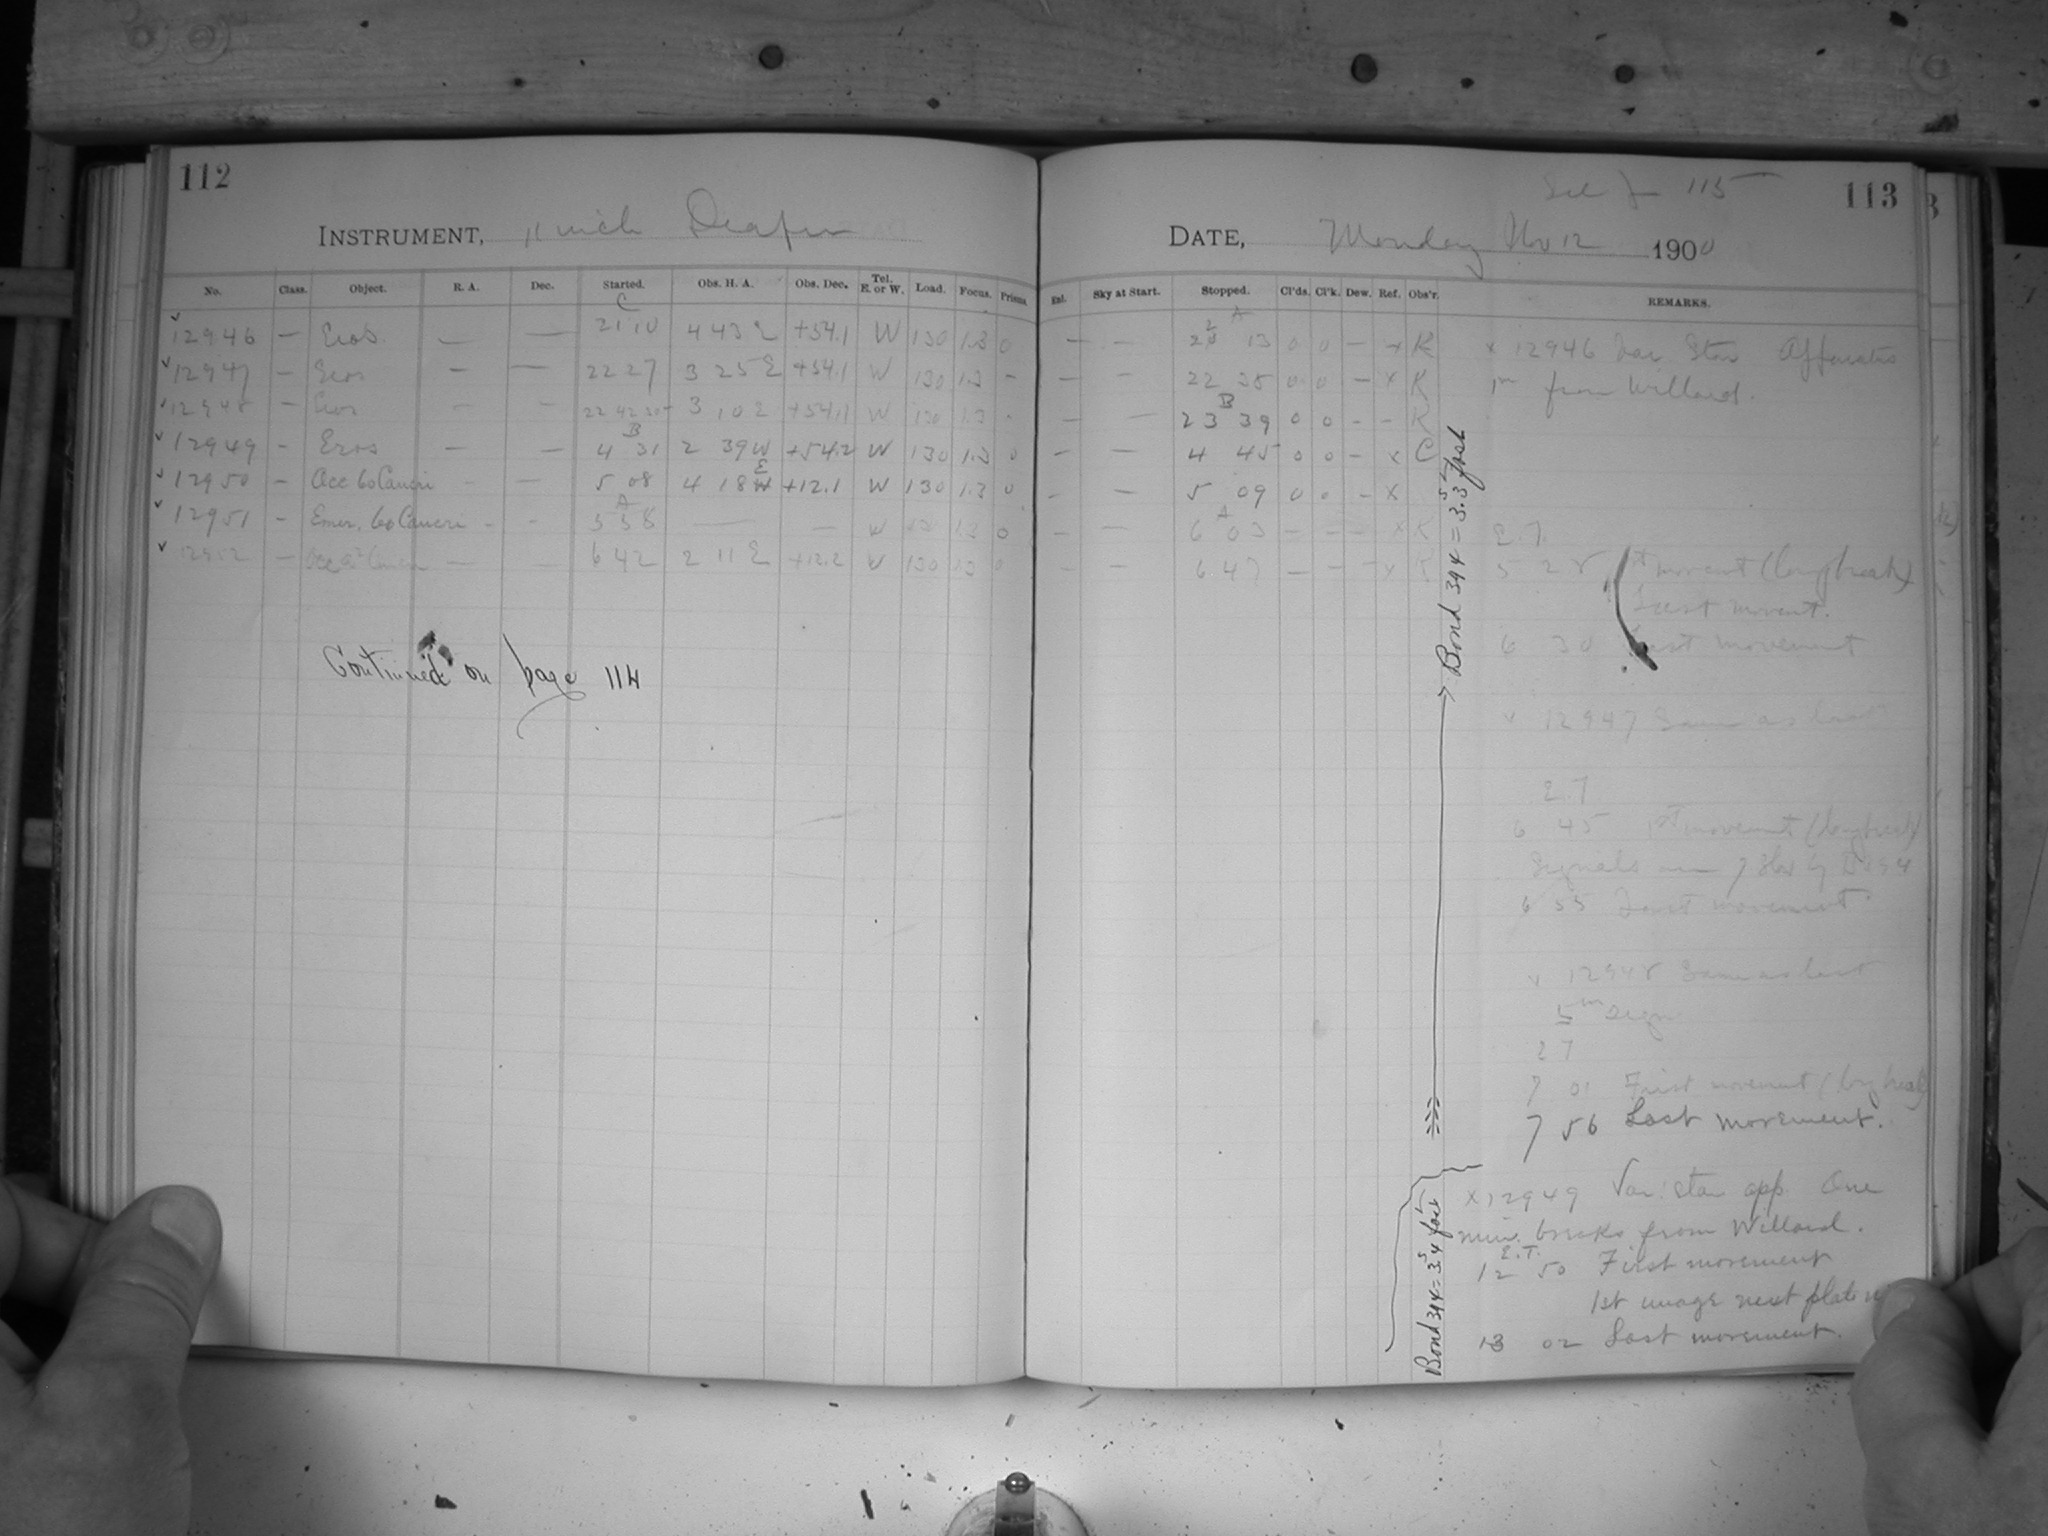 112
INSTRUMENT, 11 inch Draper
No. Class. Object. R. A. Dec. Started. Obs. H. A. Obs. Dec. Tel. E. or W. Load. Focus. Prisms.
C
12946 — Eros — — 21 10 4 43 E +54.1 W 130 1.3 0
12947 — Eros — — 22 27 3 25 E +54.1 W 130 1.3 -
12948 — Eros — — 22 42 3 10 E +54.1 W 130 1.3 -
B
12949 — Eros — — 4 31 2 39 W +54.2 W 130 1.3 0
12950 - Occ 60 Cancri - — 5 08 4 18 E +12.1 W 130 1.3 0
A
12951 - Emer. 60 Cancri - - 5 58 — — W 130 1.3 0
12952 — Occ Cancri — — 6 42 2 11 E +12.2 W 130 1.3 0
Continued on page 114
113
115
DATE, Monday Nov 12 1900
Ent. Sky at Start. Stopped. Cl'ds. Cl'k. Dew. Ref. Obs'r. REMARKS.
A
— — 22 13 0 0 — x R
— - 22 38 0 0 — x R
B
— 23 39 0 0 - - R
— — 4 45 0 0 — x C
- — 5 09 0 0 - x
A
- — 6 03 — — — x R
- — 6 47 — — - x R
Bond 394 = 3.3s fast
x 12946 Var Star Apparatus
1m from Willard.
2.7
5 28 1st movement (long break)
Last movement.
6 30 Last movement
x 12947 Same as last
2.7
6 45 1st movement (long break)
Signals
6 55 Last movement
x 12948 Same as last
5m
27
7 01 First movement (long break)
7 56 Last movement.
Bond 394 = 3.4s fast
x12949 Var. star app. One
min. breaks from Willard.
E.T.
12 50 First movement
1st image next plate
13 02 Last movement.